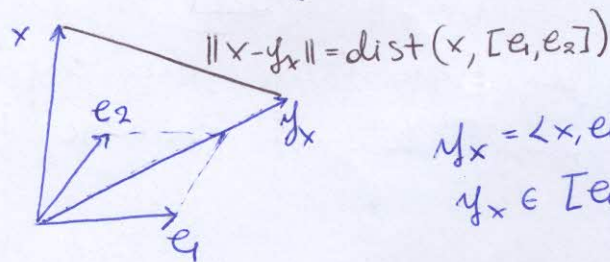 x
||x-y_x|| = dist(x, [e_1, e_2])
e_2
y_x
e_1
y_x = <x, e
y_x ∈ [e